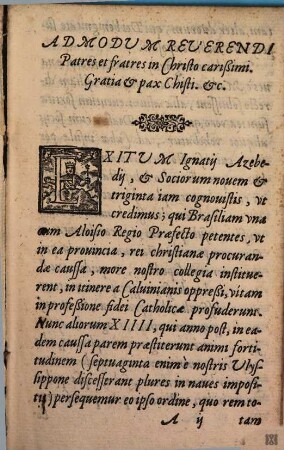 ADMODVM REVERENDI
Patres et fratres in Christo carissimi.
Gratia & pax Chisti. &c.
EXITVM Ignatij Azebe-
dij, & Sociorum nouem &
triginta iam cognouistis, vt
credimus; qui Brasiliam vna
cum Aloisio Regio Præfecto petentes, vt
in ea prouincia, rei christianæ procuran-
dæ caussa, more nostro collegia institue-
rent, in itinere a Caluinianis oppressi, vitam
in professione fidei Catholicæ profuderunt.
Nunc aliorum XIIII, qui anno post, in ea-
dem caussa parem præstiterunt animi forti-
tudinem (septuaginta enim è nostris Vlys-
sippone discesserant plures in naues imposi-
ti) persequemur eo ipso ordine, quo rem to-
A ij tam